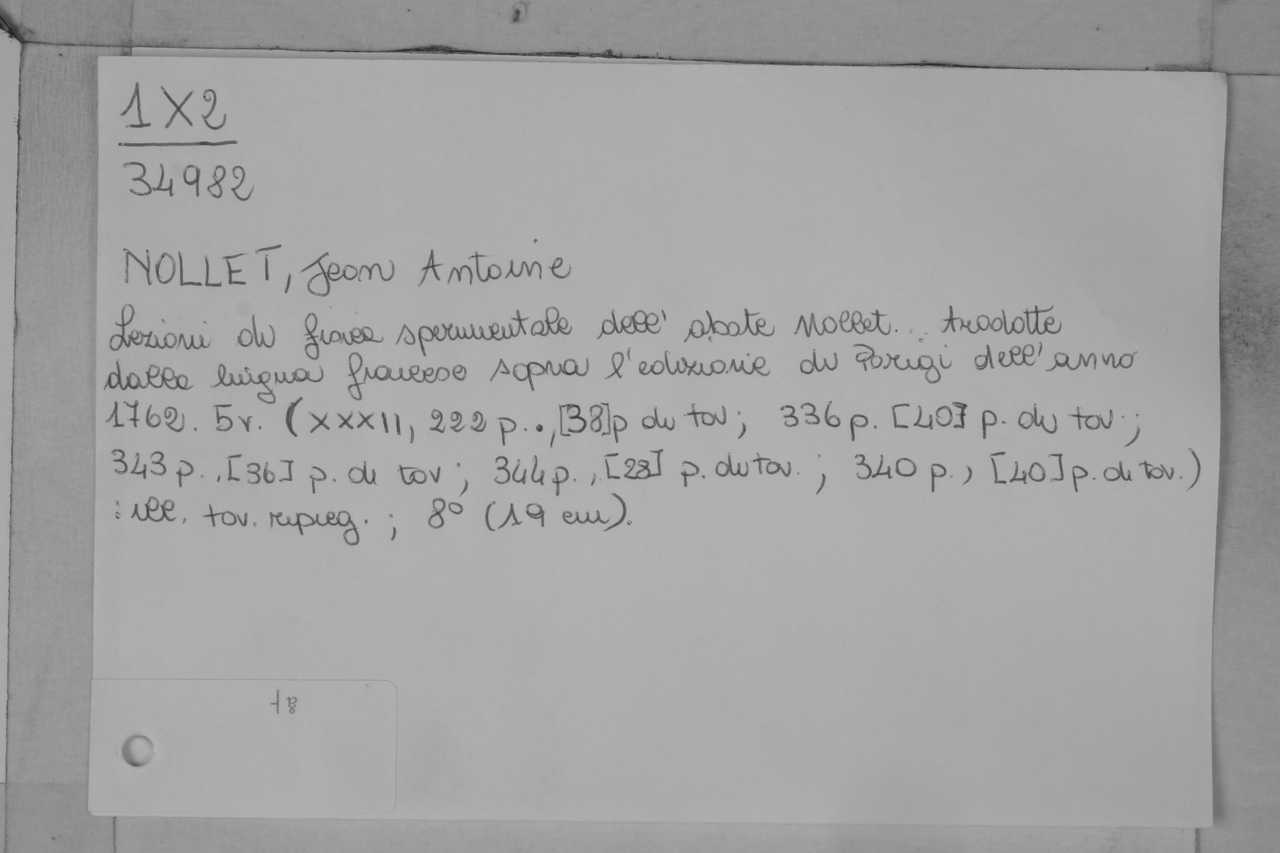 1X2
34982
NOLLET, Jean Antoine
Lezioni di fisica sperimentale dell' abate Nollet... tradotte
dalla lingua francese sopra l'edizione di Parigi dell' anno
1762. 5v. (XXXII, 222 p., [38]p di tav; 336 p. [40] p. di tav.;
343 p., [36] p. di tav; 344 p., [28] p. di tav.; 340 p., [40] p. di tav.)
: ill. tav. ripieg.; 8° (19 cm).